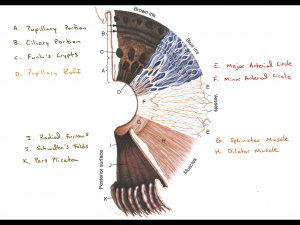 A. Pupillary Portion
B. Ciliary Portion
C. Fuch's Crypts
D. Pupillary Ruff
I. Radial Furrows
J. Schwalbe's Folds
K. Pars Plicata
Brown iris
Blue iris
Vessels
Muscles
Posterior surface
A
B
C
D
E
F
E
G
H
I
J
K
E. Major Arterial Circle
F. Minor Arterial Circle
G. Sphincter Muscle
H. Dilator Muscle